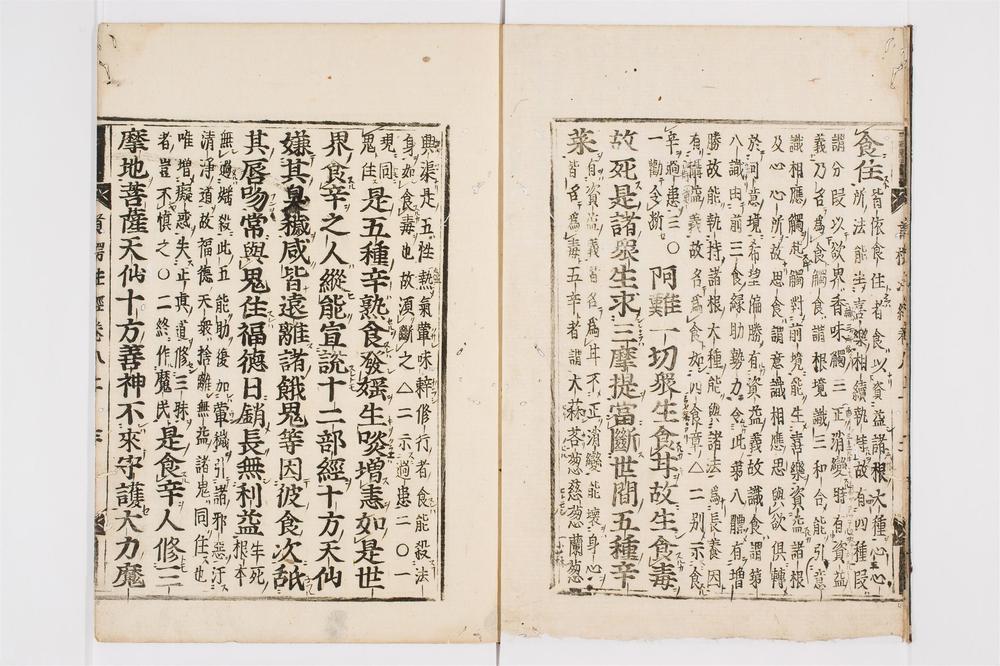 食住 皆依食住者食以資益諸根大種心心
所法能生喜樂相續執持故有四種段
謂分段以欲界香味觸三正消變時有資益
義乃名爲食觸食謂根境識三和合能引意
識相應觸起觸對前境能生喜樂資益諸根
及心心所故思食謂意識相應思與欲俱轉
於可意境希望偏勝有資益義故識食謂第
八識由前三食緣助勢力令此第八體有增
勝故能執持諸根大種能與諸法爲長養因
有攝益義故名爲如四食章△二別示食
辛過患三〇
一勸令斷
阿難一切衆生食甘故生食毒
故死是諸衆生求三摩提當斷世間五種辛
菜 有資益義皆名爲甘不正消變能壞身心
皆名爲毒五辛者謂大蒜茖葱慈葱蘭葱
興渠是五性熱氣葷味辣修行者食能殺法
身如食毒也故須斷之△二示過患二〇一
現同
鬼住
是五種辛熟食發婬生啖增恚如是世
界食辛之人縱能宣說十二部經十方天仙
嫌其臭穢咸皆遠離諸餓鬼等因彼食次舐
其唇吻常與鬼住福德日銷長無利益 生死
根本
無過婬殺此五能助復加葷穢引諸邪惡汙
清淨道故福德天衆捨離無益諸鬼同住也
唯增癡惑失正真道修三昧
者豈不慎之〇二終作魔民
是食辛人修三
摩地菩薩天仙十方善神不來守護大力魔